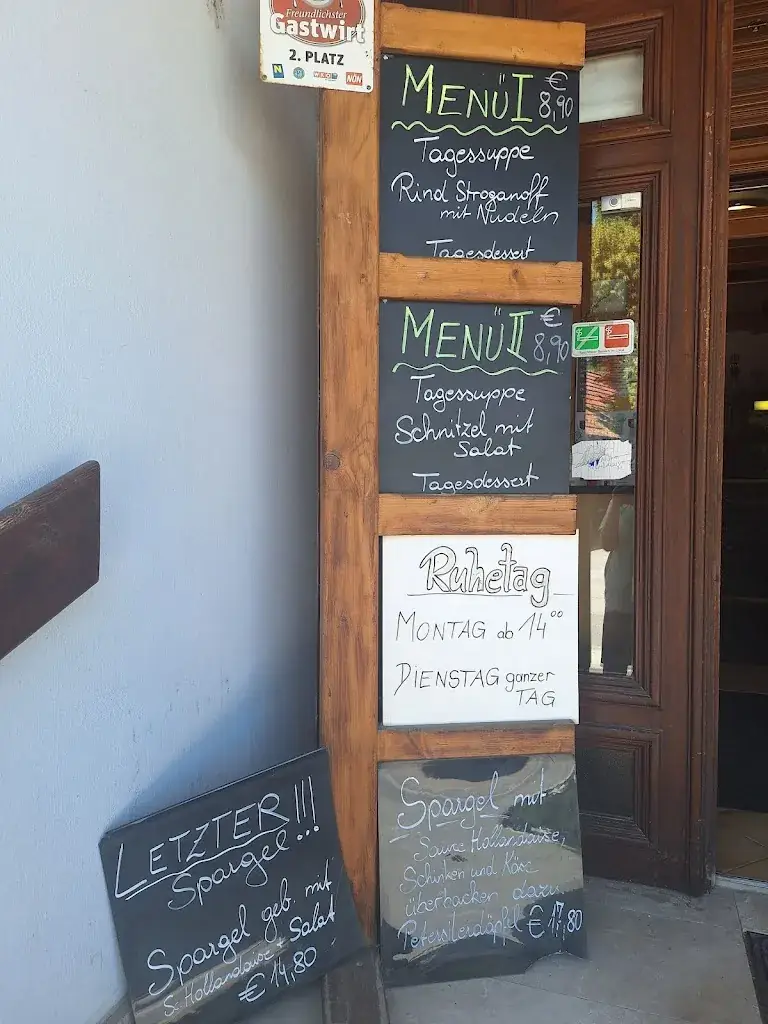 Freundlichster
Gastwirt
2. PLATZ
MENÜ I € 8,90
Tagessuppe
Rind Stroganoff
mit Nudeln
Tagesdessert
MENÜ II € 8,90
Tagessuppe
Schnitzel mit
Salat
Tagesdessert
Ruhetag
MONTAG ab 14⁰⁰
DIENSTAG ganzer
TAG
Spargel mit
Sauce Hollandaise,
Schinken und Käse
überbacken dazu
Petersilerdäpfel € 17,80
LETZTER !!!
Spargel
Spargel geb. mit
S. Hollandaise + Salat
€ 14,80